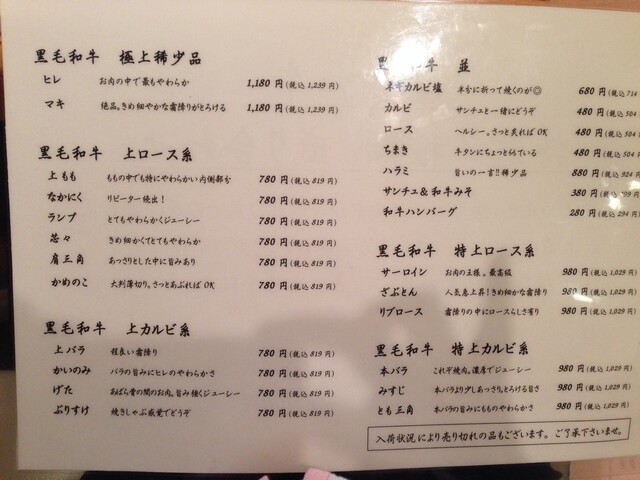 黒毛和牛 極上稀少品
ヒレ お肉の中で最もやわらか 1,180 円 (税込 1,239 円)
マキ 絶品。きめ細やかな霜降りがとろける 1,180 円 (税込 1,239 円)
黒毛和牛 上ロース系
上もも ももの中でも特にやわらかい内側部分 780 円 (税込 819 円)
なかにく リピーター続出! 780 円 (税込 819 円)
ランプ とてもやわらかくジューシー 780 円 (税込 819 円)
芯々 きめ細かくてとてもやわらか 780 円 (税込 819 円)
肩三角 あっさりとした中に旨みあり 780 円 (税込 819 円)
かめのこ 大判薄切り。さっとあぶれば OK 780 円 (税込 819 円)
黒毛和牛 上カルビ系
上バラ 程良い霜降り 780 円 (税込 819 円)
かいのみ バラの旨みにヒレのやわらかさ 780 円 (税込 819 円)
げた あばら骨の間のお肉。旨み強くジューシー 780 円 (税込 819 円)
ぶりすけ 焼きしゃぶ感覚でどうぞ 780 円 (税込 819 円)
黒 和牛 並
ネギカルビ塩 半分に折って焼くのが◎ 680 円 (税込 714
カルビ サンチュと一緒にどうぞ 480 円 (税込 504
ロース ヘルシー。さっと炙れば OK 480 円 (税込 504
ちまき 牛タンにちょっと似ている 480 円 (税込 504
ハラミ 旨いの一言!!稀少品 880 円 (税込 924 円
サンチュ&和牛みそ 380 円 (税込 399 円
和牛ハンバーグ 280 円 (税込 294 円)
黒毛和牛 特上ロース系
サーロイン お肉の王様。最高級 980 円 (税込 1,029 円)
ざぶとん 人気急上昇!きめ細かな霜降り 980 円 (税込 1,029 円)
リブロース 霜降りの中にロースらしさ有り 980 円 (税込 1,029 円)
黒毛和牛 特上カルビ系
本バラ これぞ焼肉。濃厚でジューシー 980 円 (税込 1,029 円)
みすじ 本バラより少しあっさり。とろける旨さ 980 円 (税込 1,029 円)
とも三角 本バラの旨みにもものやわらかさ 980 円 (税込 1,029 円)
入荷状況により売り切れの品もございます。ご了承下さいませ。